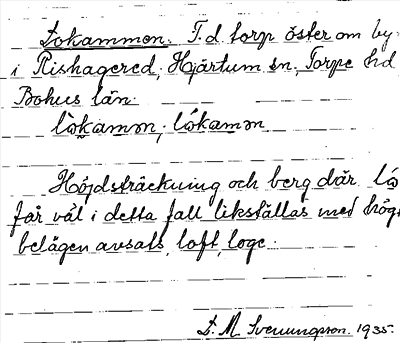 Lokammen. T.d torp öster om by-
i Rishagered, Hjärtum sn, Torpe hd
Bohus län.
lòkamən, lókamən
Höjdsträckning och berg där Lo
får väl i detta fall likställas med hög-
belägen avsats, loft, loge.
D. M. Svenungsson. 1935.